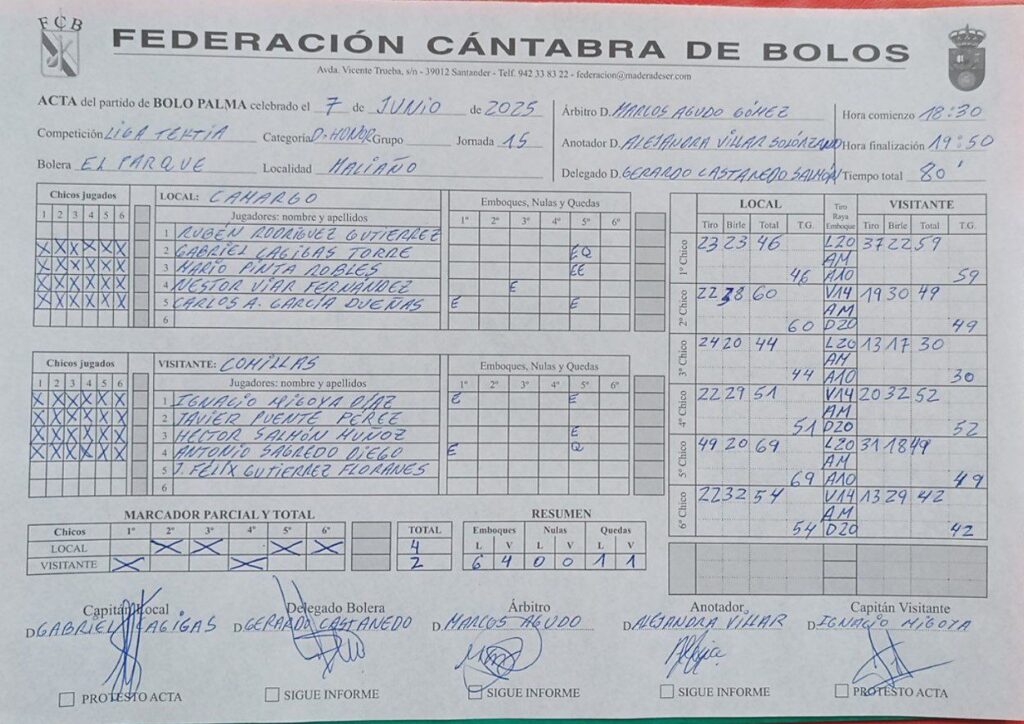 FCB
FEDERACIÓN CÁNTABRA DE BOLOS
Avda. Vicente Trueba, s/n - 39012 Santander - Telf. 942 33 83 22 - federacion@maderadeser.com
ACTA del partido de BOLO PALMA celebrado el 7 de JUNIO de 2025
Competición LIGA TEKTIA Categoría D. HONOR Grupo Jornada 15
Bolera EL PARQUE Localidad MALIAÑO
Árbitro D. MARCOS AGUDO GÓMEZ
Anotador D. ALEJANDRA VILLAR SOLÓRZANO
Delegado D. GERARDO CASTANEDO SALMÓN
Hora comienzo 18:30
Hora finalización 19:50
Tiempo total 80'
Chicos jugados LOCAL: CAMARGO Emboques, Nulas y Quedas
1 2 3 4 5 6 Jugadores: nombre y apellidos 1º 2º 3º 4º 5º 6º
1 RUBÉN RODRÍGUEZ GUTIERREZ
X X X X X X 2 GABRIEL CAGIGAS TORRE EQ
X X X X X X 3 MARIO PINTA ROBLES EE
X X X X X X 4 NESTOR VIAR FERNANDEZ E
X X X X X X 5 CARLOS A. GARCÍA DUEÑAS E E
6
Chicos jugados VISITANTE: COMILLAS Emboques, Nulas y Quedas
1 2 3 4 5 6 Jugadores: nombre y apellidos 1º 2º 3º 4º 5º 6º
X X X X X X 1 IGNACIO MIGOYA DÍAZ E E
X X X X X X 2 JAVIER PUENTE PEREZ
X X X X X X 3 HECTOR SALMÓN MUÑOZ E
X X X X X X 4 ANTONIO SAGREDO DIEGO E Q
5 J. FÉLIX GUTIERREZ FLORANES
6
LOCAL Tiro Raya Emboque VISITANTE
Tiro Birle Total T.G. Tiro Birle Total T.G.
1º Chico 23 23 46 L20 37 22 59
AM
46 A10 59
2º Chico 22 38 60 V14 19 30 49
AM
60 D20 49
3º Chico 24 20 44 L20 13 17 30
AM
44 A10 30
4º Chico 22 29 51 V14 20 32 52
AM
51 D20 52
5º Chico 49 20 69 L20 31 18 49
AM
69 A10 49
6º Chico 22 32 54 V14 13 29 42
AM
54 D20 42
MARCADOR PARCIAL Y TOTAL
Chicos 1º 2º 3º 4º 5º 6º TOTAL
LOCAL X X X X 4
VISITANTE X X 2
RESUMEN
Emboques Nulas Quedas
L V L V L V
6 4 0 0 1 1
Capitán Local Delegado Bolera Árbitro Anotador Capitán Visitante
D. GABRIEL CAGIGAS D. GERARDO CASTANEDO D. MARCOS AGUDO D. ALEJANDRA VILLAR D. IGNACIO MIGOYA
PROTESTO ACTA SIGUE INFORME SIGUE INFORME SIGUE INFORME PROTESTO ACTA